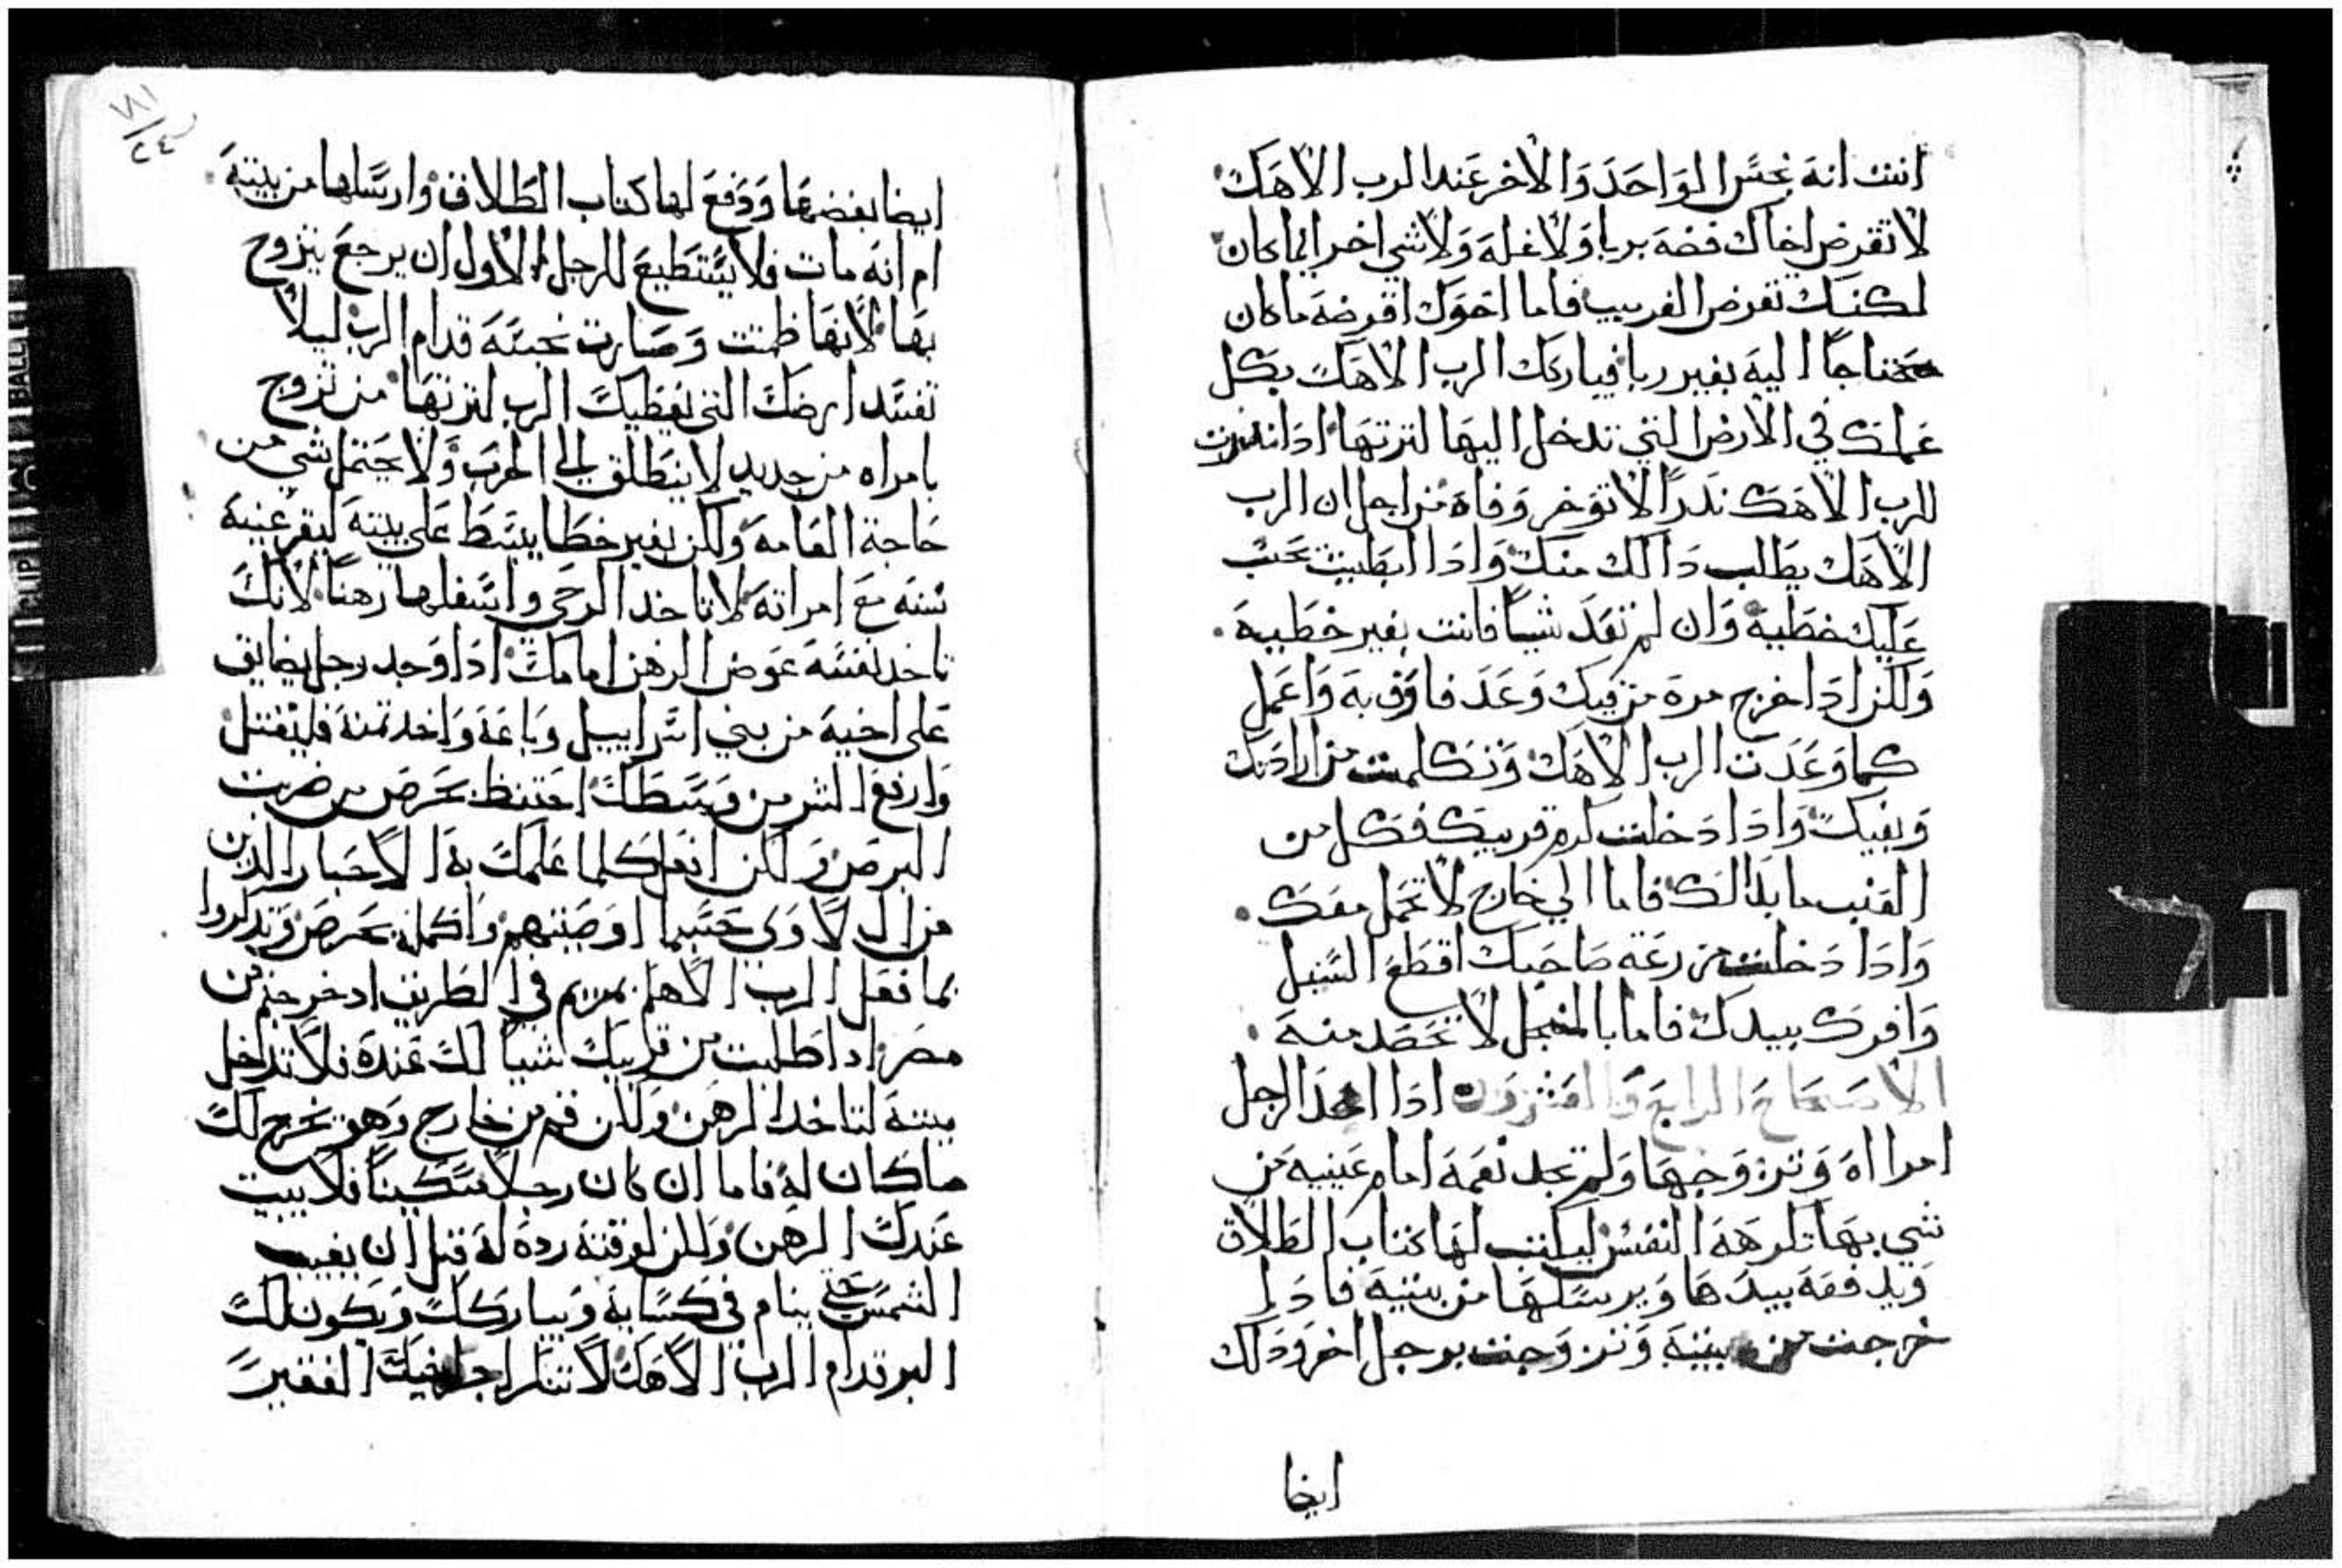 انت انه نجس الواحد والاخر عند الرب الاهك
لا تقرض اخاك فضه بربا ولا غله ولا شي اخر ايما كان
لكنك تقرض الغريب فاما اخوك اقرضه ما كان
محتاجًا اليه بغير ربا فيباركك الرب الاهك بكل
عملك في الارض التي تدخل اليها لترتها ادا ندرت
للرب الاهك ندرًا لا توخر وفاه من اجل ان الرب
الاهك يطلب دالك منك وادا ابطيت تحسب
عليك خطية وان لم تعد شيا فانت بغير خطيه
ولكن ادا خرج مرة من فيك وعد فاوف به واعمل
كما وعدت الرب الاهك وتكلمت من ارادتك
وبفيك وادا دخلت كرم قريبك فكل من
العنب ما بدالك فاما الي خارج لا تحمل معك
وادا دخلت زرعة صاحبك اقطع السنبل
وافرك بيدك فاما بالمنجل لا تحصد منه
الاصحاح الرابع والعشرون ادا اخذ الرجل
امرااه وتزوجها ولم تجد نعمة امام عينيه من
شي بها تكرهه النفس ليكتب لها كتاب الطلاق
ويدفعه بيدها ويرسلها من بيتيه فادا
خرجت من بيته وتزوجت برجل اخر ودلك
ايضا
١٨١
٢٤
ايضا بغضها ودفع لها كتاب الطلاق وارسلها من بيته
ام انه مات فلا يستطيع للرجل الاول ان يرجع يتزوج
بها لانها ظمتت وصارت نجسه قدام الرب ليلا
تفسد ارضك التي يعطيك الرب لترتها من تزوج
بامراه من جديد لا ينطلق الي الحرب ولا يحتمل شي من
حاجة العامه ولكن بغير خطا يبسط علي بيته ليقر عنيه
سنه مع امراته لا تاخد الرحي واسفلها رهنًا لانك
تاخد نفسه عوض الرهن امامك ادا وجد رجل يضايق
علي اخيه من بني اسراييل وباعة واخد تمنه فليقتل
وارفع الشر من وسطك احتفظ بحرص من ضربت
البرص ولكن افعل كلما علمك به الاحبار الدين
من ال لاوي حسبما اوصيتهم واكمله بحرص وتدكروا
بما فعل الرب الاهكم بمريم في الطريق اد خرجتم من
مصر ادا طلبت من قريبك شيا لك عنده فلا تدخل
بيته لتاخد الرهن ولكن قم من خارج وهو يخرج لك
ما كان له فاما ان كان رجلا مسكينًا فلا يبيت
عندك الرهن ولكن لوقته رده له قبل ان يغيب
الشمس حتي ينام في كسايه ويباركك ويكون لك
البر قدام الرب الاهك لا تنكر اجر اخيك الفقير